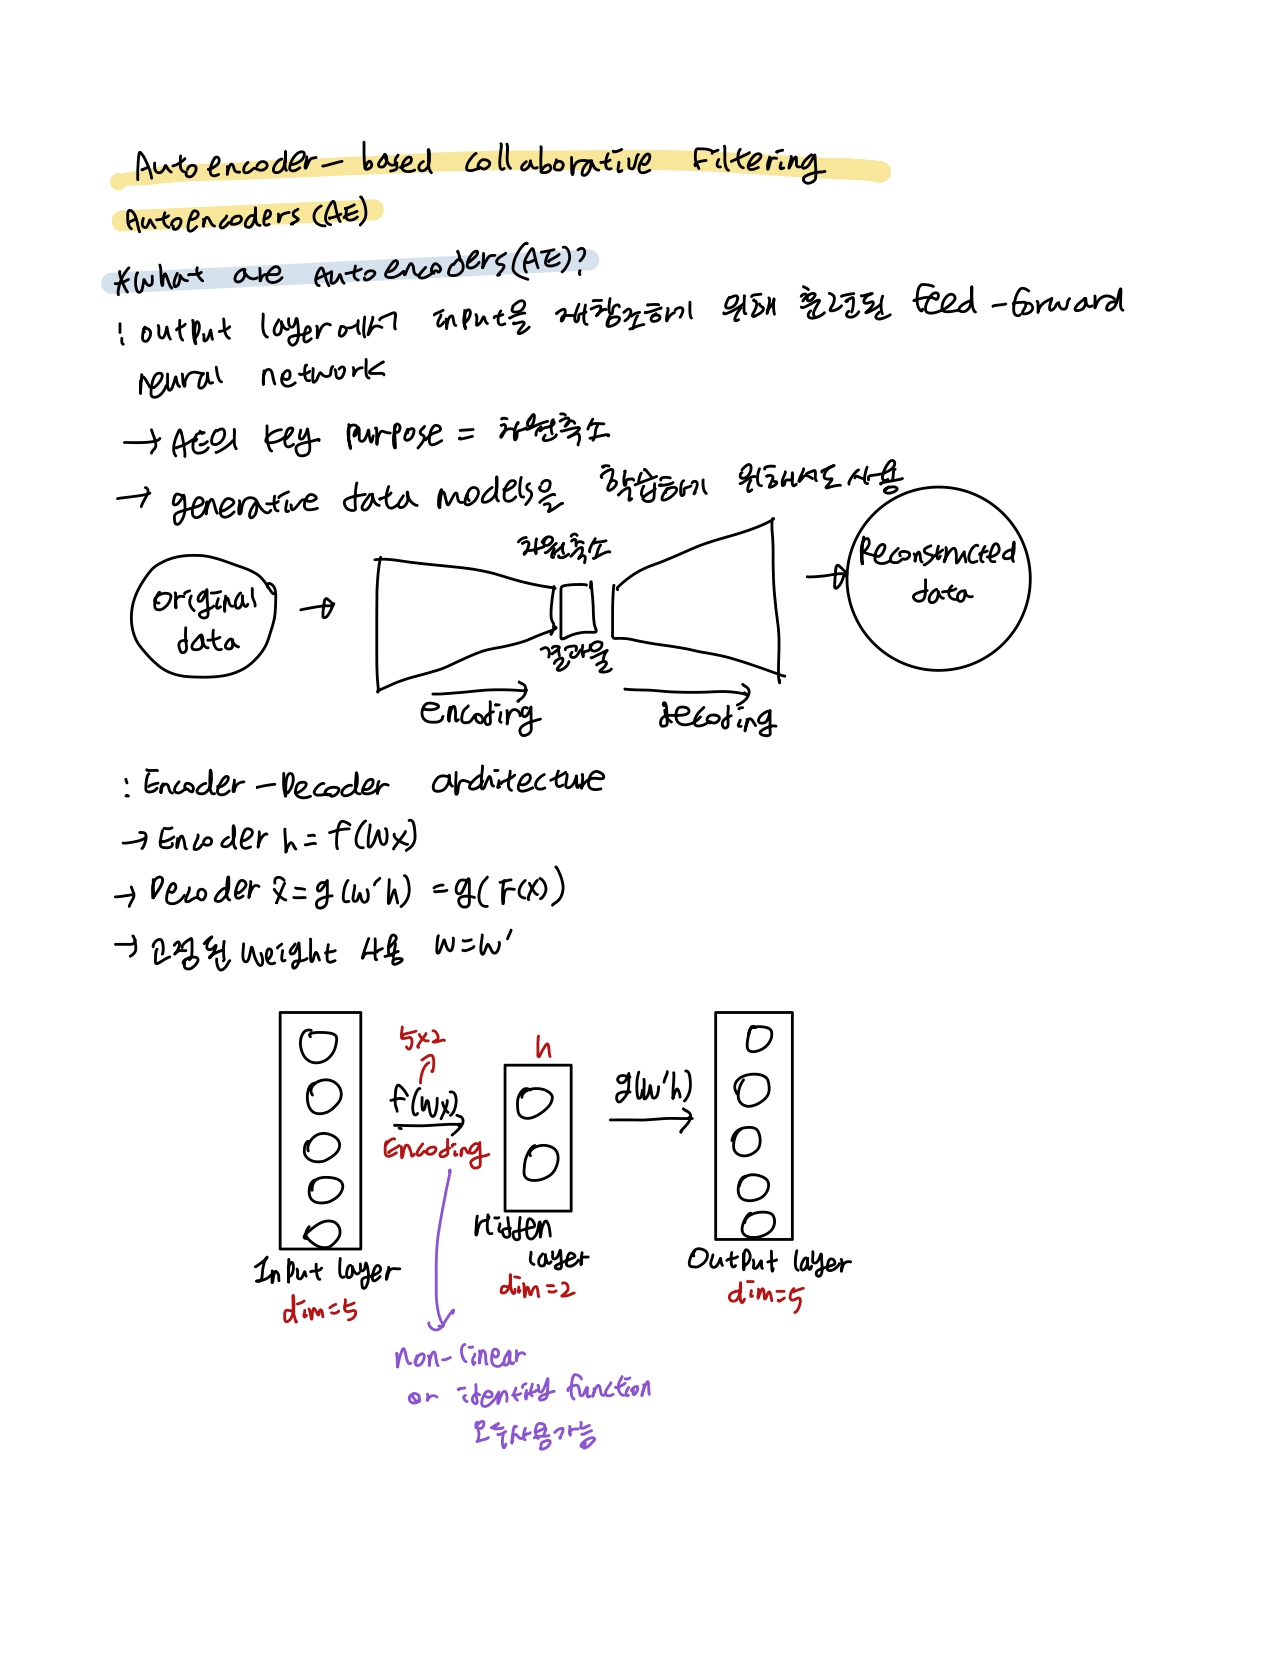 Autoencoder-based collaborative Filtering
Autoencoders(AE)
*What are Autoencoders(AE)?
: output layer에서 input을 재창조하기 위해 훈련된 feed-forward
neural network
→ AE의 key purpose = 차원축소
→ generative data models을 학습하기 위해서도 사용
original
data
→
차원축소
결과물
encoding
decoding
→
Reconstructed
data
: Encoder-Decoder architecture
→ Encoder h = f(Wx)
→ Decoder x̂ = g(w'h) = g(F(x))
→ 고정된 weight 사용 w=w'
5x2
f(Wx)
Encoding
h
g(w'h)
Input layer
dim=5
Hidden
layer
dim=2
Output layer
dim=5
non-linear
or identity function
모두사용가능